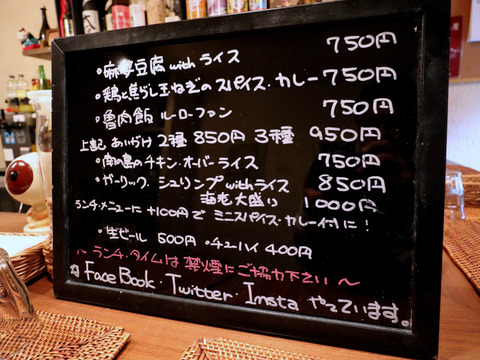 ・麻婆豆腐 with ライス 750円
・鶏と焦がし玉ねぎのスパイス・カレー 750円
・魯肉飯 ルーローファン 750円
上記 あいがけ 2種 850円 3種 950円
・南の島のチキン・オーバーライス 750円
・ガーリック・シュリンプ with ライス 850円
海老大盛り 1000円
ランチ・メニューに +100円で ミニスパイス・カレー付に!
・生ビール 500円 ・チューハイ 400円
〜 ランチ・タイムは 禁煙にご協力下さい 〜
FaceBook・Twitter・Insta やっています。